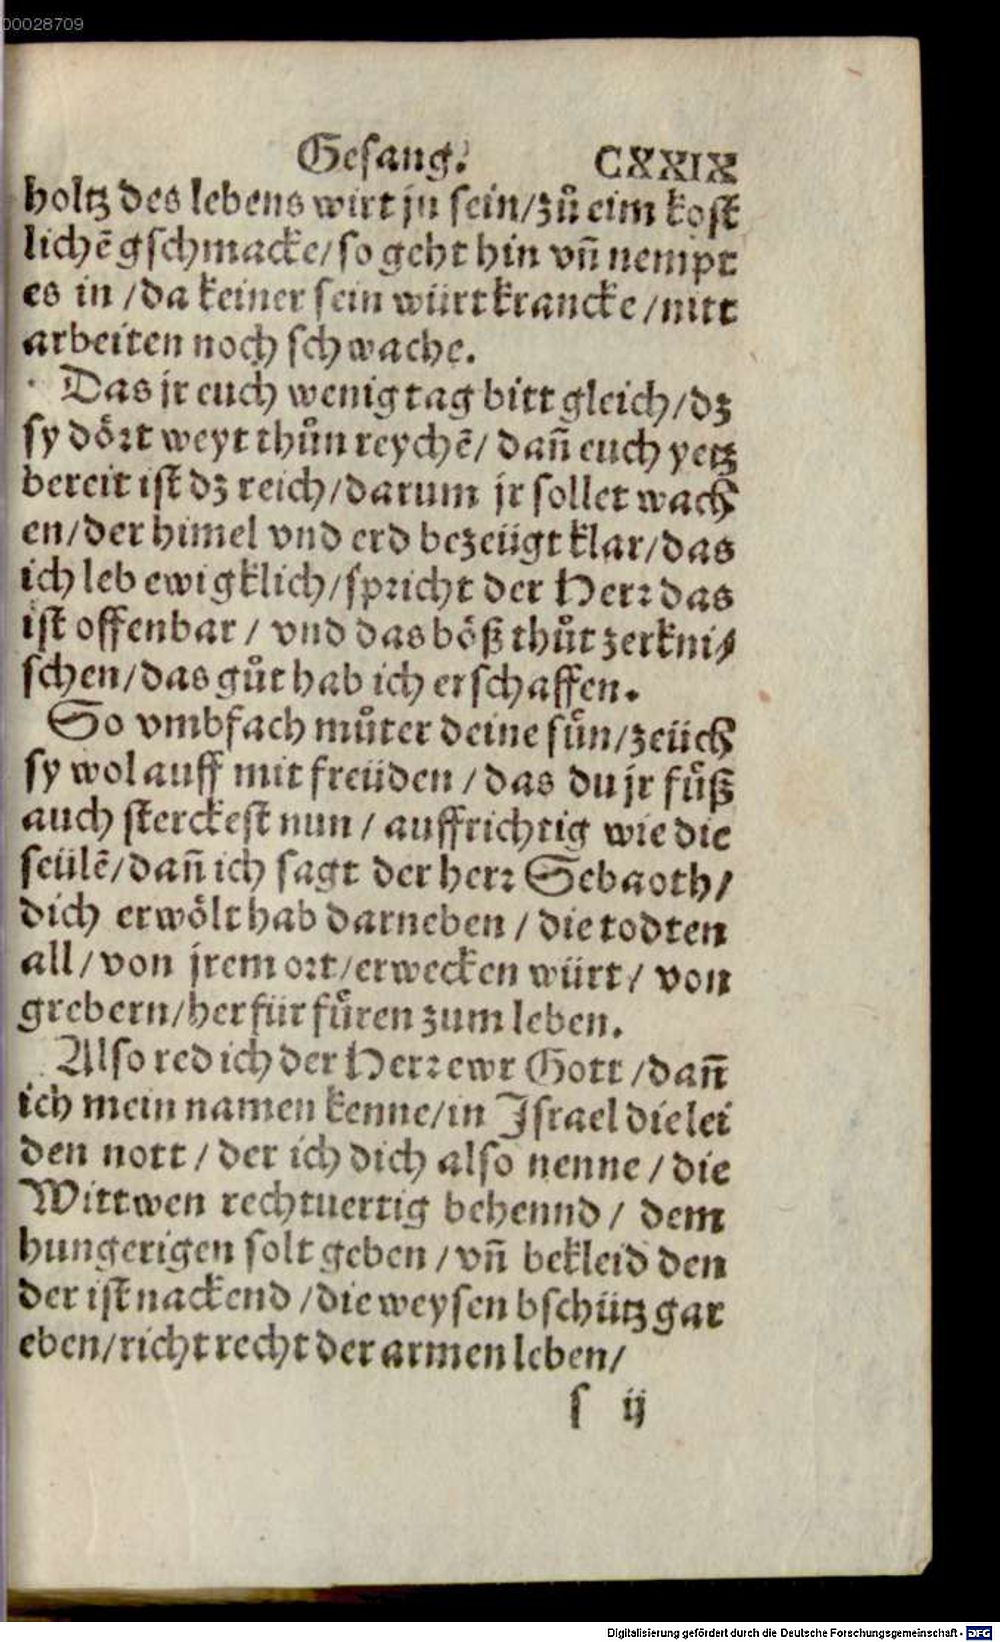 00028709
Gesang. CXXIX
holtz des lebens wirt jn sein/zů eim kost
lichē gschmacke/so geht hin vñ nempt
es in /da keiner sein würt krancke/nitt
arbeiten noch schwache.
Das jr euch wenig tag bitt gleich/dz
sy dört weyt thůn reychē/ dañ euch yetz
bereit ist dz reich/darum jr sollet wach
en/der himel vnd erd bezeügt klar/das
ich leb ewigklich/spricht der Herr das
ist offenbar / vnd das böß thůt zerkni/
schen/das gůt hab ich erschaffen.
So vmbfach můter deine sün/zeüch
sy wol auff mit freüden /das du jr füß
auch sterckest nun / auffrichtig wie die
seülē/dañ ich sagt der herr Sebaoth/
dich erwölt hab darneben / die todten
all/von jrem ort/erwecken würt/ von
grebern/herfür füren zum leben.
Also red ich der Herr ewr Gott /dañ
ich mein namen kenne/in Israel die lei
den nott / der ich dich also nenne / die
Wittwen rechtuertig behennd/ dem
hungerigen solt geben /vñ bekleid den
der ist nackend /die weysen bschütz gar
eben/richt recht der armen leben/
s ij
Digitalisierung gefördert durch die Deutsche Forschungsgemeinschaft - DFG